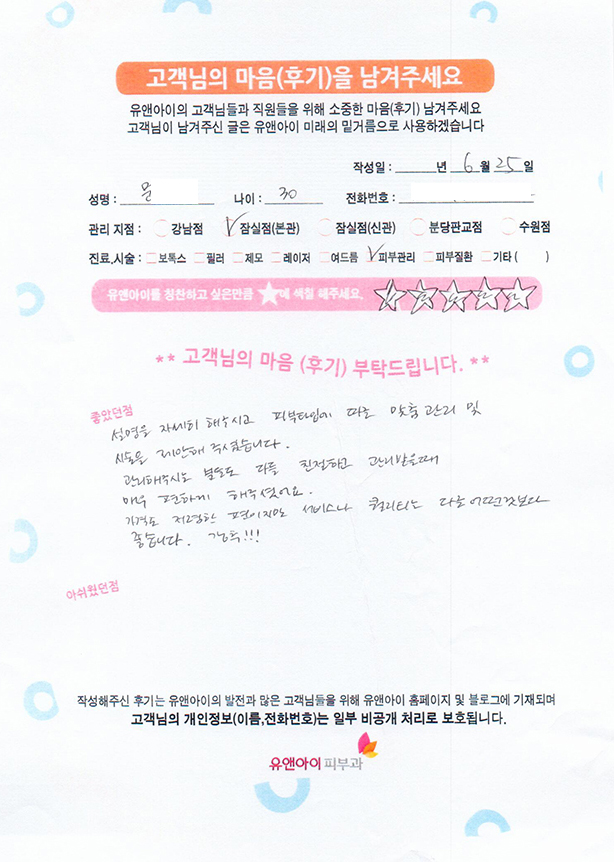 고객님의 마음(후기)을 남겨주세요
유앤아이의 고객님들과 직원들을 위해 소중한 마음(후기) 남겨주세요
고객님이 남겨주신 글은 유앤아이 미래의 밑거름으로 사용하겠습니다
작성일 : 년 6월 25일
성명 : 문 나이 : 30 전화번호 :
관리 지점 : 강남점 잠실점(본관) 잠실점(신관) 분당판교점 수원점
진료,시술 : 보톡스 필러 제모 레이저 여드름 피부관리 피부질환 기타 ( )
유앤아이를 칭찬하고 싶은만큼 ★에 색칠 해주세요.
** 고객님의 마음 (후기) 부탁드립니다. **
좋았던점
설명을 자세히 해주시고 피부타입에 따른 맞춤관리 및
시술을 제안해 주셨습니다.
관리해주시는 분들도 다들 친절하고 관리받을때
매우 편하게 해주셨어요.
가격도 저렴한 편이지만 서비스나 퀄리티는 다른 어떤곳보다
좋습니다. 강추!!!
아쉬웠던점
작성해주신 후기는 유앤아이의 발전과 많은 고객님들을 위해 유앤아이 홈페이지 및 블로그에 기재되며
고객님의 개인정보(이름,전화번호)는 일부 비공개 처리로 보호됩니다.
유앤아이 피부과